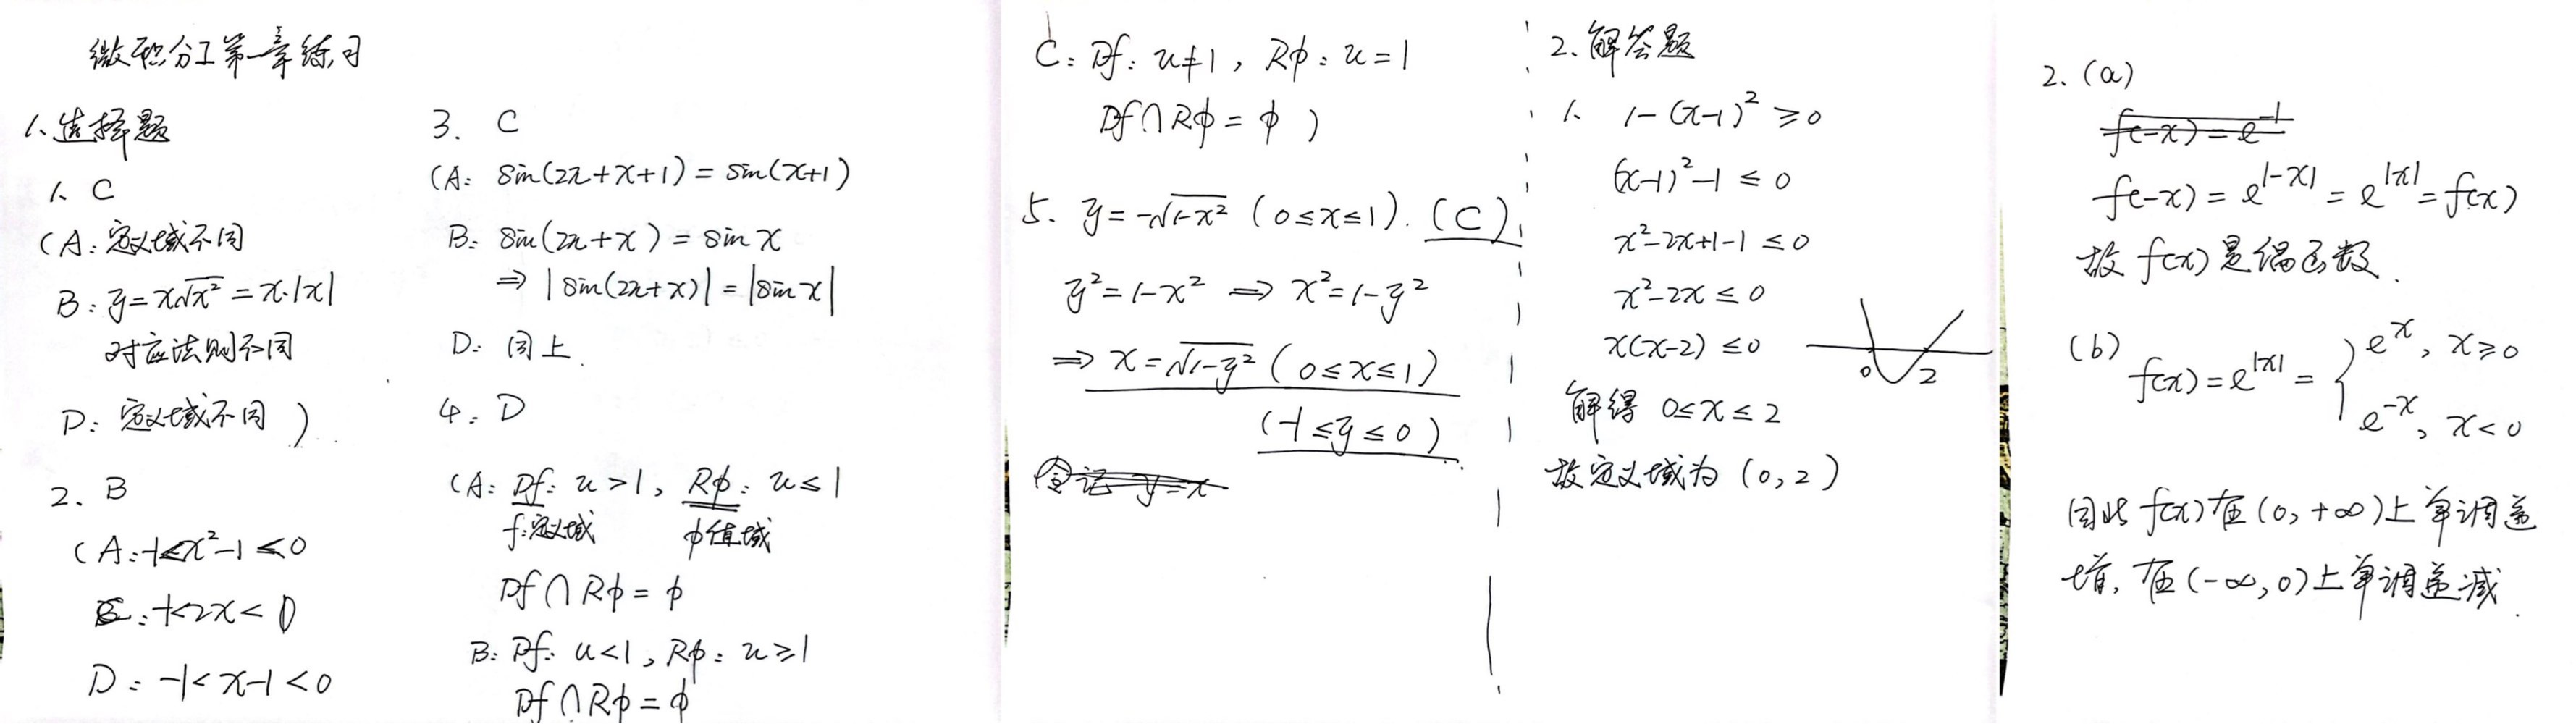 微积分I第一章练习
1、选择题
1、C
(A: 定义域不同
B: y=x√x² = x·|x|
对应法则不同
D: 定义域不同 )
2. B
(A: -1≤x²-1≤0
C: -1<2x<0
D: -1<x-1<0
3. C
(A: sin(2π+x+1) = sin(x+1)
B: sin(2π+x) = sin x
⇒ |sin(2π+x)| = |sin x|
D: 同上.
4. D
(A: Df: u>1, Rϕ: u≤1
f:定义域 ϕ值域
Df∩Rϕ = ϕ
B: Df: u<1, Rϕ: u≥1
Df∩Rϕ = ϕ
C: Df: u≠1, Rϕ: u=1
Df∩Rϕ = ϕ )
5. y=-√1-x² (0≤x≤1). (C)
y²=1-x² ⇒ x²=1-y²
⇒ x=√1-y² (0≤x≤1)
(-1≤y≤0)
y=x
2、解答题
1、 1-(x-1)²≥0
(x-1)²-1≤0
x²-2x+1-1≤0
x²-2x≤0
x(x-2)≤0
0 2
解得 0≤x≤2
故定义域为 (0,2)
2、(a)
f(-x)=e^-1
f(-x) = e^|-x| = e^|x| = f(x)
故 f(x) 是偶函数.
(b) f(x)=e^|x| = { e^x, x≥0
e^-x, x<0
因此 f(x)在(0,+∞)上单调递
增, 在(-∞,0)上单调递减.